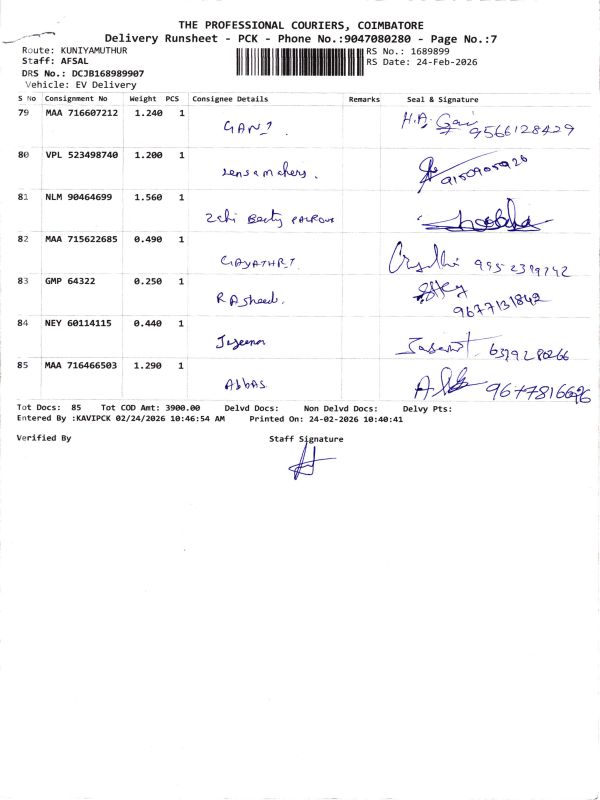 THE PROFESSIONAL COURIERS, COIMBATORE
Delivery Runsheet - PCK - Phone No.:9047080280 - Page No.:7
Route: KUNIYAMUTHUR
RS No.: 1689899
Staff: AFSAL
RS Date: 24-Feb-2026
DRS No.: DCJB168989907
Vehicle: EV Delivery
S No Consignment No Weight PCS Consignee Details Remarks Seal & Signature
79 MAA 716607212 1.240 1 9566128429
80 VPL 523498740 1.200 1 lensamakers.
81 NLM 90464699 1.560 1
82 MAA 715622685 0.490 1 GAYATHRI
83 GMP 64322 0.250 1 RAsheed. 9677131842
84 NEY 60114115 0.440 1
85 MAA 716466503 1.290 1 Abbas
Tot Docs: 85 Tot COD Amt: 3900.00 Delvd Docs: Non Delvd Docs: Delvy Pts:
Entered By :KAVIPCK 02/24/2026 10:46:54 AM Printed On: 24-02-2026 10:40:41
Verified By Staff Signature